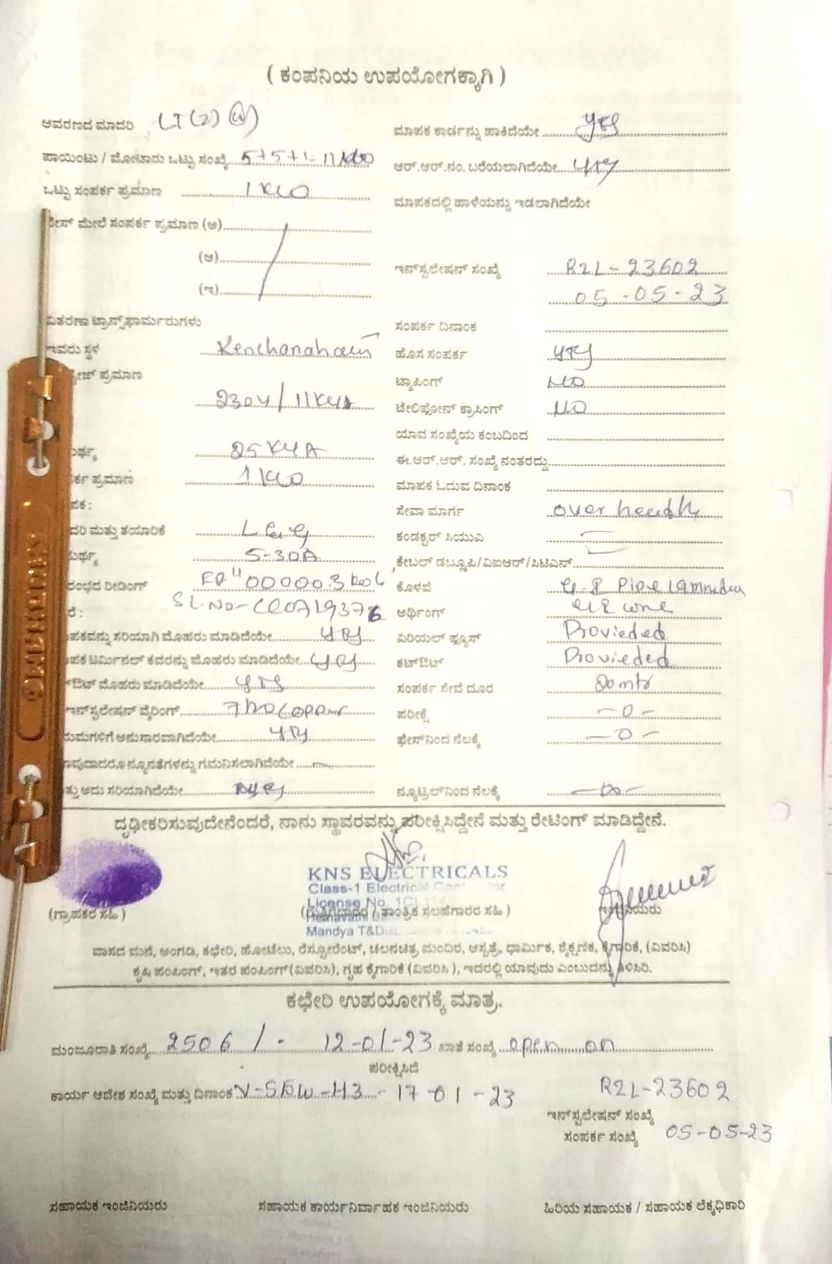 ( ಕಂಪನಿಯ ಉಪಯೋಗಕ್ಕಾಗಿ )
ಆವರಣದ ಮಾದರಿ LT (2) (a)
ಮಾಪಕ ಕಾರ್ಡನ್ನು ಹಾಕಿದೆಯೇ yes
ಪಾಯಿಂಟು / ಮೋಟಾರು ಒಟ್ಟು ಸಂಖ್ಯೆ 5+5+1-11
ಆರ್.ಆರ್.ನಂ. ಬರೆಯಲಾಗಿದೆಯೇ yes
ಒಟ್ಟು ಸಂಪರ್ಕ ಪ್ರಮಾಣ 1 KW
ಮಾಪಕದಲ್ಲಿ ಹಾಳೆಯನ್ನು ಇಡಲಾಗಿದೆಯೇ
ಮೇಲೆ ಸಂಪರ್ಕ ಪ್ರಮಾಣ (ಅ)
(ಆ)
(ಇ)
ಇನ್‌ಸ್ಟಲೇಷನ್ ಸಂಖ್ಯೆ R2L-23602
05-05-23
ವಿತರಣಾ ಟ್ರಾನ್ಸ್‌ಫಾರ್ಮರುಗಳು
ಸಂಪರ್ಕ ದಿನಾಂಕ
ಇವರು ಸ್ಥಳ
ಹೊಸ ಸಂಪರ್ಕ yes
ಪ್ರಮಾಣ
ಟ್ಯಾಪಿಂಗ್ NO
230V / 11KVA
ಟೆಲಿಫೋನ್ ಕ್ರಾಸಿಂಗ್ NO
ಯಾವ ಸಂಖ್ಯೆಯ ಕಂಬದಿಂದ
25 KVA
ಈ.ಆರ್.ಆರ್. ಸಂಖ್ಯೆ ನಂತರದ್ದು
ಪ್ರಮಾಣ 1 KW
ಮಾಪಕ ಓದುವ ದಿನಾಂಕ
ಸೇವಾ ಮಾರ್ಗ over
ಮತ್ತು ತಯಾರಿಕೆ L&G
ಕಂಡಕ್ಟರ್ ಸಿಯುಎ
5-30A
ಕೇಬಲ್ ಡಬ್ಲೂಪಿ/ವಿಐಆರ್/ಸಿಟಿಎನ್
ರೀಡಿಂಗ್ 00000.3
ಕೊಳವೆ G.I Pipe
SL.NO-
ಅರ್ಥಿಂಗ್
ಮಾಪಕವನ್ನು ಸರಿಯಾಗಿ ಮೊಹರು ಮಾಡಿದೆಯೇ yes
ಏರಿಯಲ್ ಫ್ಯೂಸ್ Provieded
ಟರ್ಮಿನಲ್ ಕವರನ್ನು ಮೊಹರು ಮಾಡಿದೆಯೇ yes
ಕಟ್‌ಔಟ್ Provieded
ಮೊಹರು ಮಾಡಿದೆಯೇ yes
ಸಂಪರ್ಕ ಸೇವೆ ದೂರ 20mtr
ಇನ್‌ಸ್ಟಲೇಷನ್ ವೈರಿಂಗ್
ಪರೀಕ್ಷೆ -0-
ಅನುಸಾರವಾಗಿದೆಯೇ yes
ಫೇಸ್‌ನಿಂದ ನೆಲಕ್ಕೆ -0-
ಯಾವುದಾದರೂ ನ್ಯೂನತೆಗಳನ್ನು ಗಮನಿಸಲಾಗಿದೆಯೇ
ಮತ್ತು ಅದು ಸರಿಯಾಗಿದೆಯೇ
ನ್ಯೂಟ್ರಲ್‌ನಿಂದ ನೆಲಕ್ಕೆ
ದೃಢೀಕರಿಸುವುದೇನೆಂದರೆ, ನಾನು ಸ್ಥಾವರವನ್ನು ಪರೀಕ್ಷಿಸಿದ್ದೇನೆ ಮತ್ತು ರೇಟಿಂಗ್ ಮಾಡಿದ್ದೇನೆ.
KNS ELECTRICALS
Class-1 Electrical
License No.
(ಗ್ರಾಹಕರ ಸಹಿ )
ತಾಂತ್ರಿಕ ಸಲಹೆಗಾರರ ಸಹಿ )
Mandya T&D
ವಾಸದ ಮನೆ, ಅಂಗಡಿ, ಕಛೇರಿ, ಹೋಟೆಲು, ರೆಸ್ಟೋರೆಂಟ್, ಚಲನಚಿತ್ರ ಮಂದಿರ, ಆಸ್ಪತ್ರೆ, ಧಾರ್ಮಿಕ, ಶೈಕ್ಷಣಿಕ, ಕೈಗಾರಿಕೆ, (ವಿವರಿಸಿ)
ಕೃಷಿ ಪಂಪಿಂಗ್, ಇತರ ಪಂಪಿಂಗ್(ವಿವರಿಸಿ), ಗೃಹ ಕೈಗಾರಿಕೆ (ವಿವರಿಸಿ ), ಇದರಲ್ಲಿ ಯಾವುದು ಎಂಬುದನ್ನು ತಿಳಿಸಿರಿ.
ಕಛೇರಿ ಉಪಯೋಗಕ್ಕೆ ಮಾತ್ರ.
ಮಂಜೂರಾತಿ ಸಂಖ್ಯೆ 2506 / - 12-01-23 ಖಾತೆ ಸಂಖ್ಯೆ open on
ಪರೀಕ್ಷಿಸಿದೆ
ಕಾರ್ಯ ಆದೇಶ ಸಂಖ್ಯೆ ಮತ್ತು ದಿನಾಂಕ 17-01-23
R2L-23602
ಇನ್‌ಸ್ಟಲೇಷನ್ ಸಂಖ್ಯೆ
ಸಂಪರ್ಕ ಸಂಖ್ಯೆ 05-05-23
ಸಹಾಯಕ ಇಂಜಿನಿಯರು
ಸಹಾಯಕ ಕಾರ್ಯನಿರ್ವಾಹಕ ಇಂಜಿನಿಯರು
ಹಿರಿಯ ಸಹಾಯಕ / ಸಹಾಯಕ ಲೆಕ್ಕಾಧಿಕಾರಿ